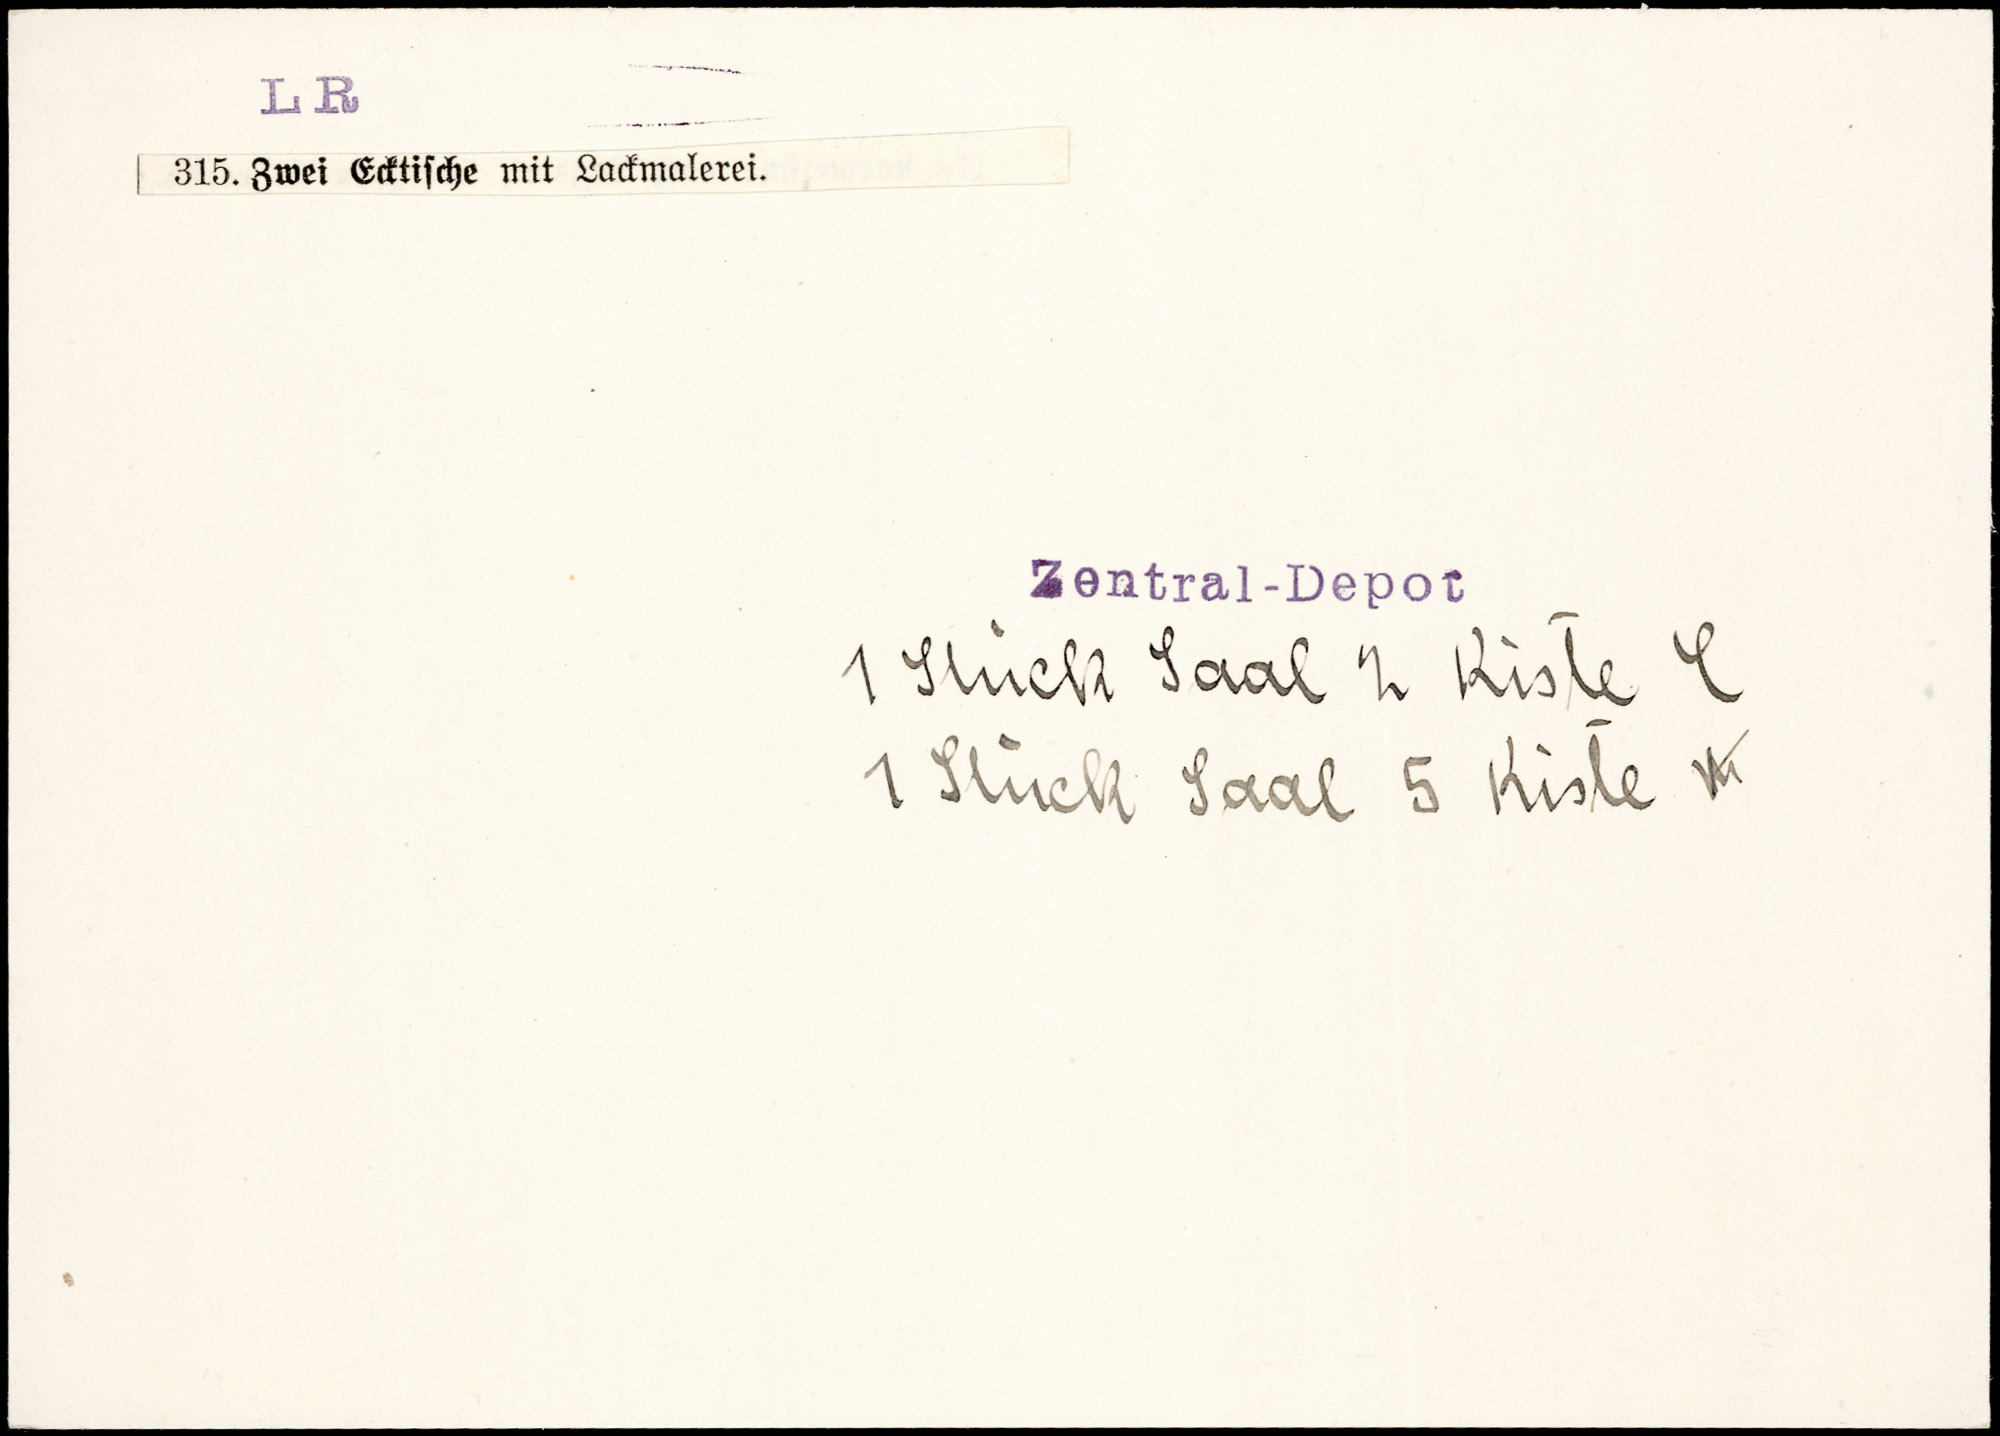 LR
315. Zwei Ecktische mit Lackmalerei.
Zentral-Depot
1 Stück Saal 2 Kiste
1 Stück Saal 5 Kiste